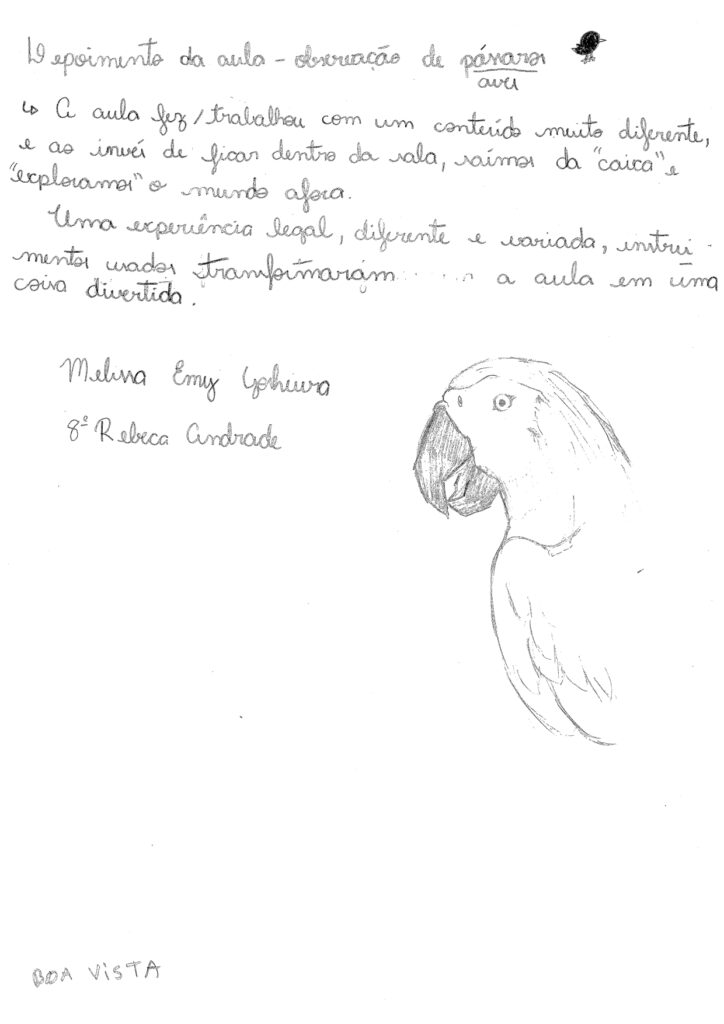 Depoimento da aula - observação de pássaros
aves
↳ A aula fez/trabalhou com um conteúdo muito diferente,
e ao invés de ficar dentro da sala, saímos da "caixa" e
"exploramos" o mundo afora.
Uma experiência legal, diferente e variada, instru
mentos usados transformaram a aula em uma
coisa divertida.
Melissa Emy
8º Rebeca Andrade
BOA VISTA